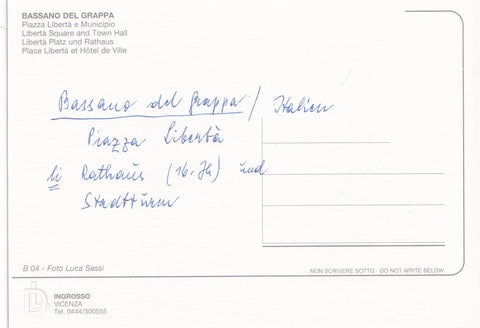 BASSANO DEL GRAPPA
Piazza Libertà e Municipio
Libertà Square and Town Hall
Libertà Platz und Rathaus
Place Libertà et Hôtel de Ville
Bassano del Grappa / Italien
Piazza Libertà
li Rathaus (16. Jh) und
Stadtturm
B 04 - Foto Luca Sassi
NON SCRIVERE SOTTO - DO NOT WRITE BELOW
INGROSSO
VICENZA
Tel. 0444/300555